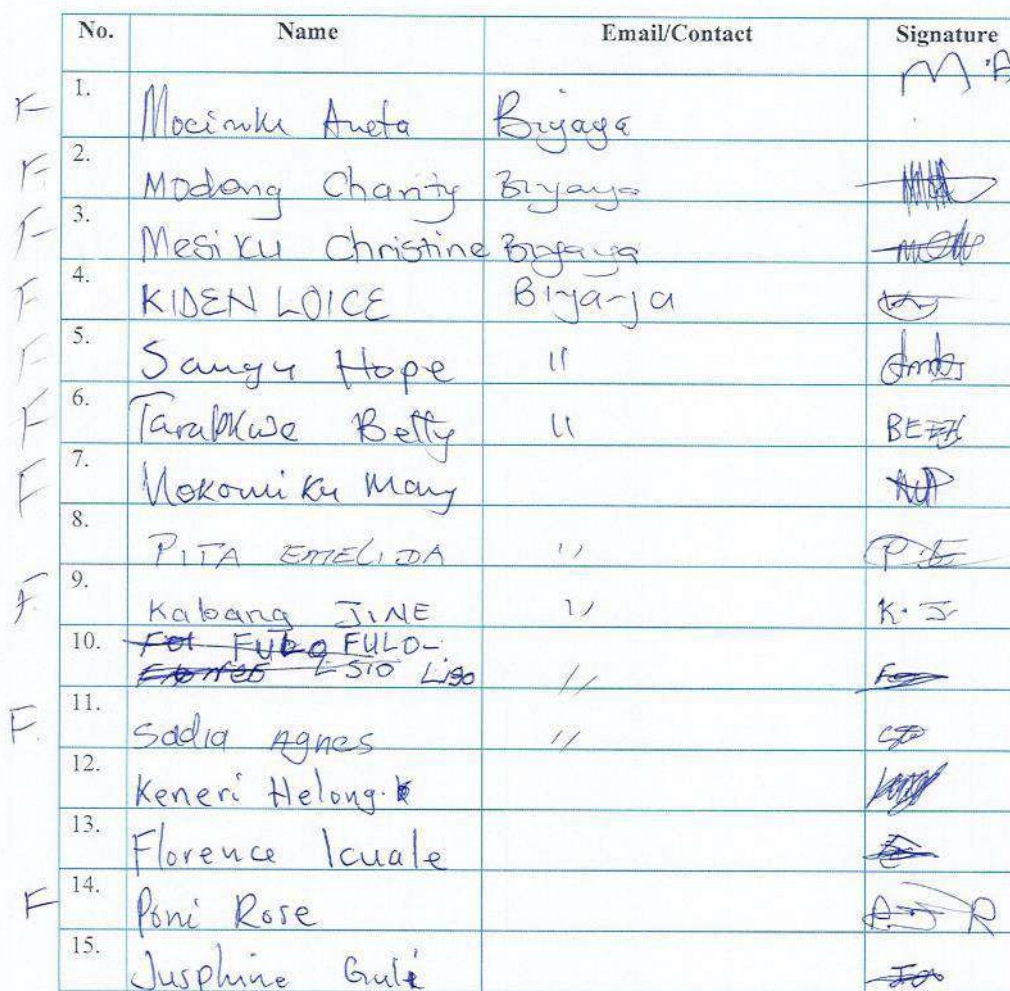 No. Name Email/Contact Signature
M.A
F 1. Mocinku Aneta Biyaya
F. 2. Modong Charity Biyaya
F 3. Mesiku Christine Biyaya
F 4. KIDEN LOICE Biya-ya
F 5. Sangu Hope "
F 6. Betty " BETTY
F 7. Mary
8. PITA EMELIDA " P.E
F. 9. Kabang JINE " K.J
10. FULO-
Ligo "
F. 11. Sadia Agnes "
12. Keneri Helong.
13. Florence Icuale
F 14. Poni Rose R
15. Jusphine Gule